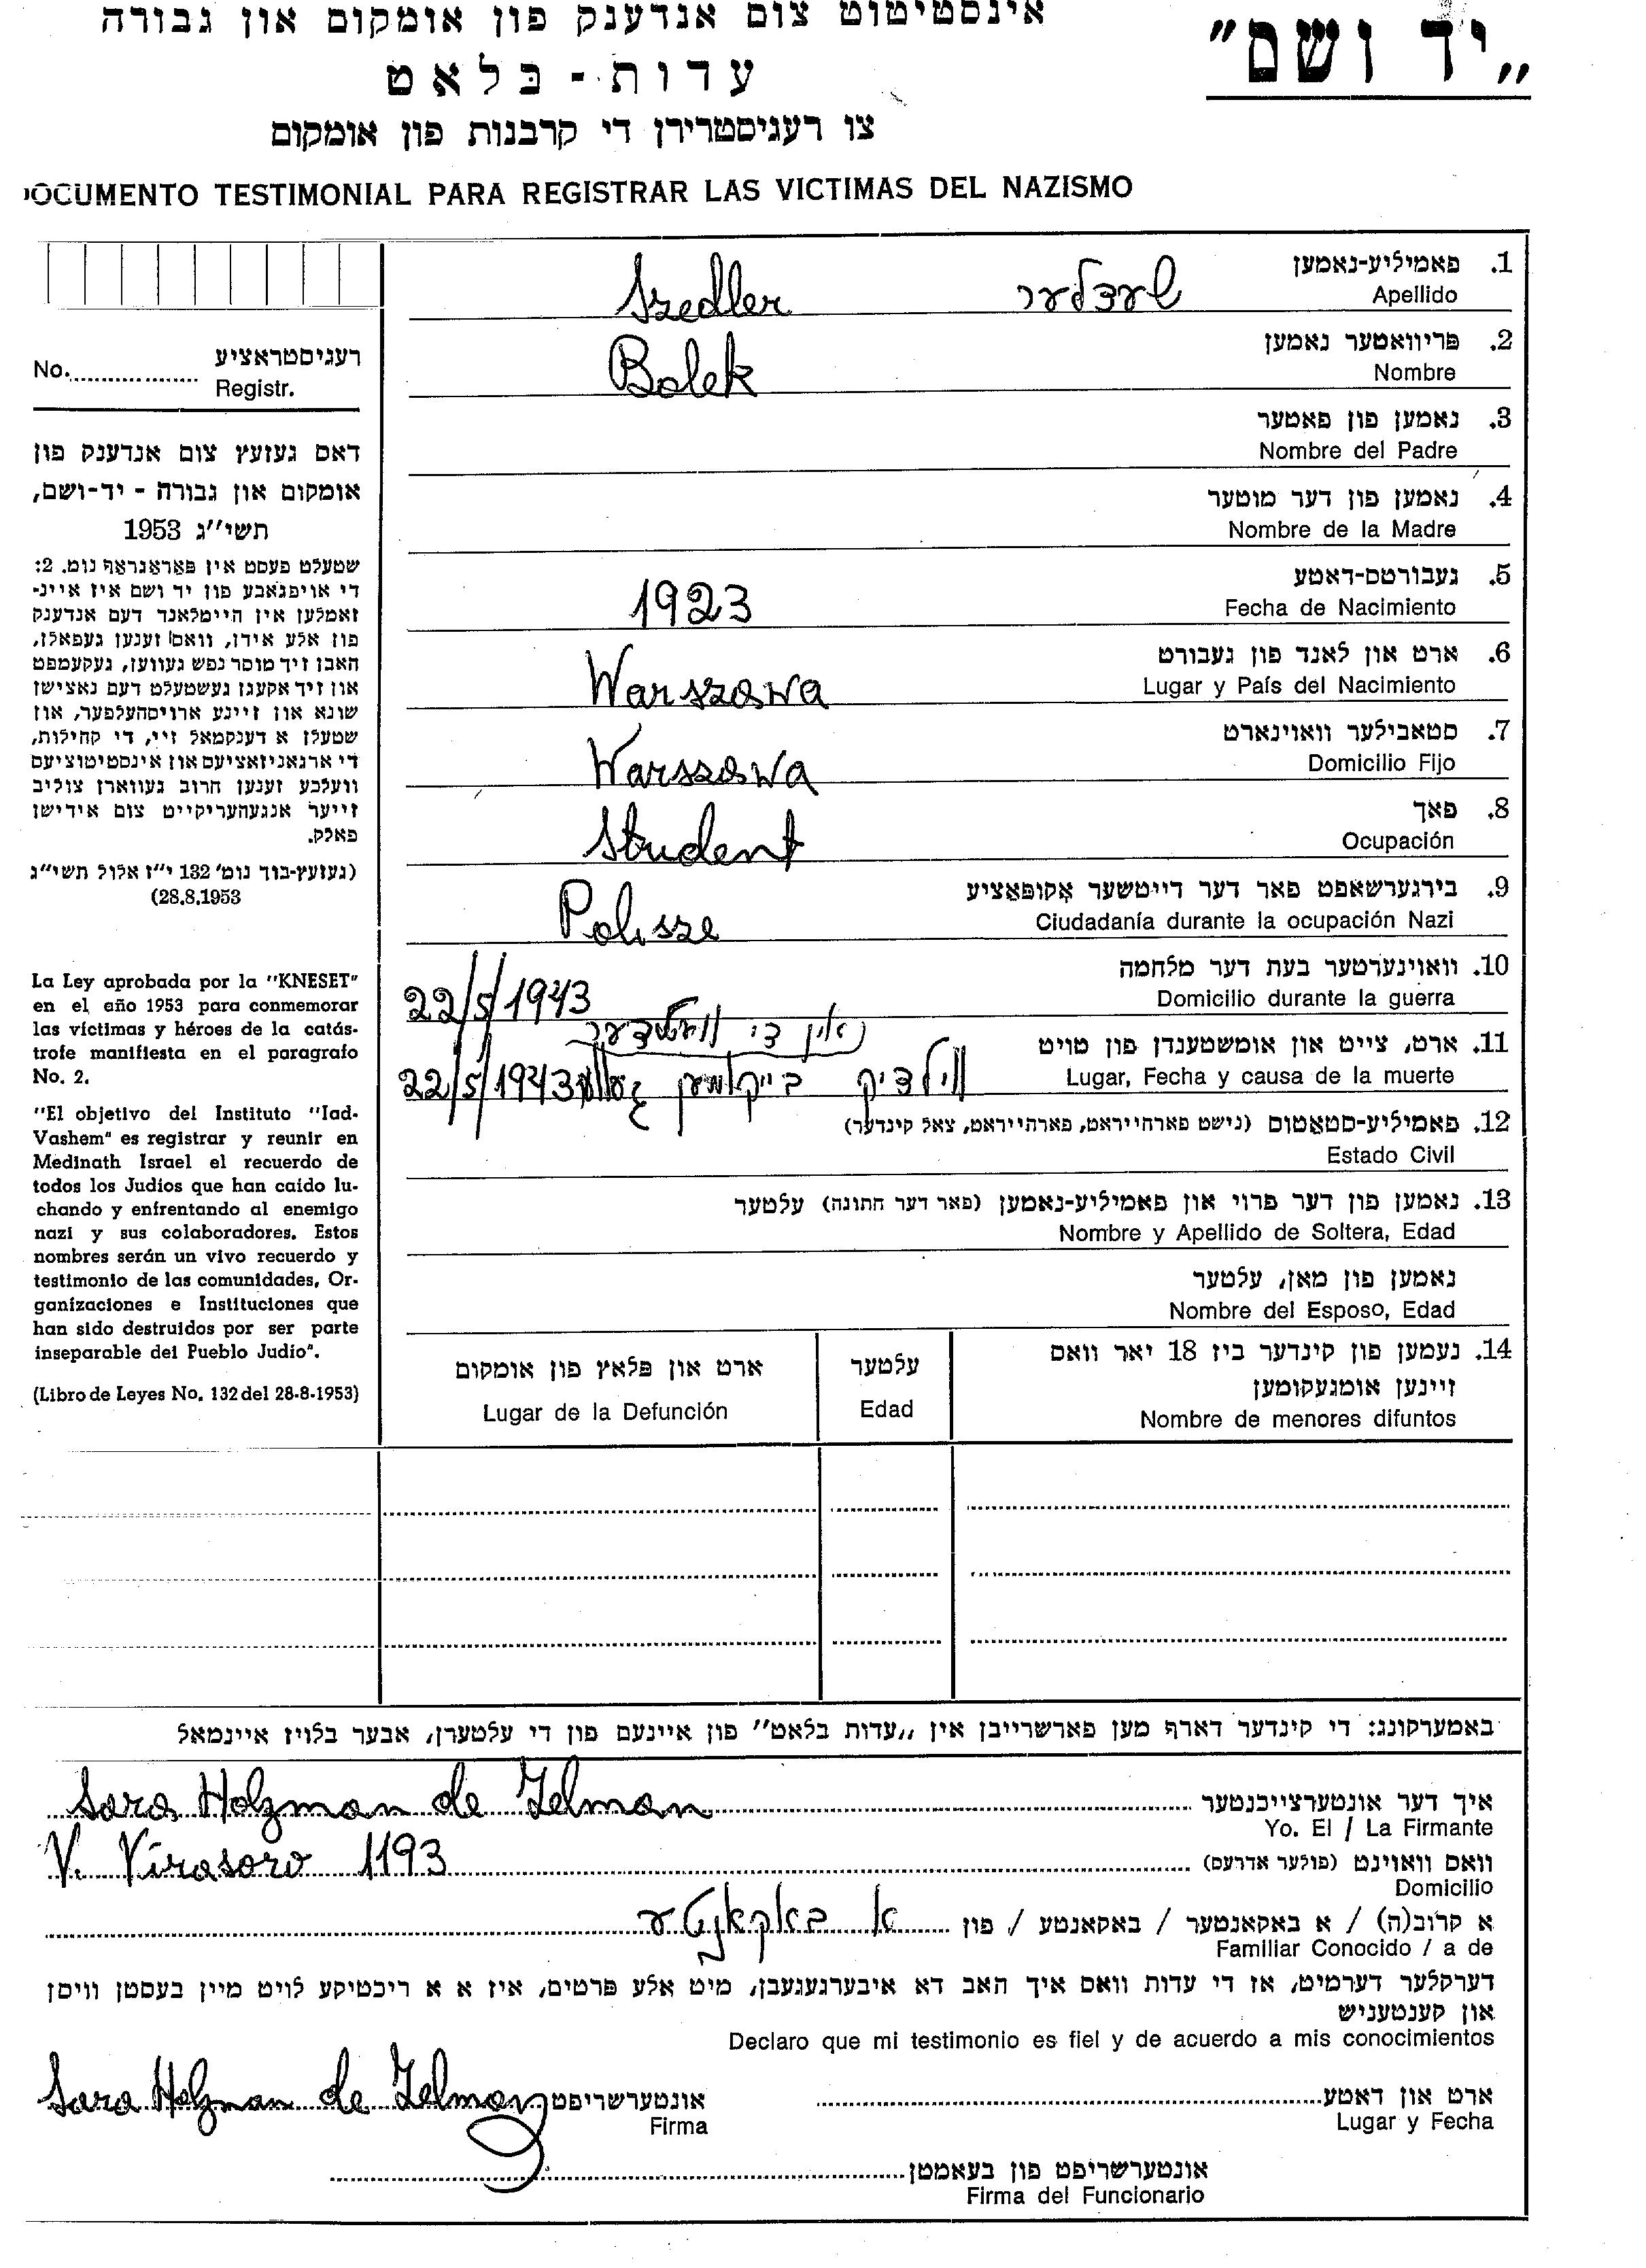 „יד ושם"
אינסטיטוט צום אנדענק פון אומקום און גבורה
עדות-בלאט
צו רעגיסטרירן די קרבנות פון אומקום
DOCUMENTO TESTIMONIAL PARA REGISTRAR LAS VICTIMAS DEL NAZISMO
1. פאמיליע-נאמען
Apellido
Szedler שעדלער
2. פריוואטער נאמען
Nombre
Bolek
3. נאמען פון פאטער
Nombre del Padre
4. נאמען פון דער מוטער
Nombre de la Madre
5. געבורטס-דאטע
Fecha de Nacimiento
1923
6. ארט און לאנד פון געבורט
Lugar y País del Nacimiento
Warszawa
7. סטאבילער וואוינארט
Domicilio Fijo
Warszawa
8. פאך
Ocupación
Student
9. בירגערשאפט פאר דער דייטשער אָקופּאַציע
Ciudadanía durante la ocupación Nazi
Polisze
10. וואוינערטער בעת דער מלחמה
Domicilio durante la guerra
22/5/1943
אין די וועלדער
11. ארט, צייט און אומשטענדן פון טויט
Lugar, Fecha y causa de la muerte
22/5/1943
12. פאמיליע-סטאַטוס (נישט פארהייראט, פארהייראט, צאל קינדער)
Estado Civil
13. נאמען פון דער פרוי און פאמיליע-נאמען (פאר דער חתונה) עלטער
Nombre y Apellido de Soltera, Edad
נאמען פון מאן, עלטער
Nombre del Esposo, Edad
14. נעמען פון קינדער ביז 18 יאר וואס
זיינען אומגעקומען
Nombre de menores difuntos
עלטער
Edad
ארט און פלאץ פון אומקום
Lugar de la Defunción
רעגיסטראציע
No. Registr.
דאס געזעץ צום אנדענק פון
אומקום און גבורה - יד-ושם,
תשי"ג 1953
שטעלט פעסט אין פאראגראף נומ. 2:
די אויפגאבע פון יד ושם איז איינ-
זאמלען אין היימלאנד דעם אנדענק
פון אלע אידן, וואס זענען געפאלן,
האבן זיך מוסר נפש געווען, געקעמפט
און זיך אקעגן געשטעלט דעם נאצישן
שונא און זיינע ארויסהעלפער, און
שטעלן א דענקמאל זיי, די קהילות,
די ארגאניזאציעס און אינסטיטוציעס
וועלכע זענען חרוב געווארן צוליב
זייער אנגעהעריקייט צום אידישן
פאלק.
(געזעץ-בוך נומ' 132 י"ז אלול תשי"ג
28.8.1953)
La Ley aprobada por la "KNESET"
en el año 1953 para conmemorar
las víctimas y héroes de la catás-
trofe manifiesta en el paragrafo
No. 2.
"El objetivo del Instituto "Iad-
Vashem" es registrar y reunir en
Medinath Israel el recuerdo de
todos los Judios que han caído lu-
chando y enfrentando al enemigo
nazi y sus colaboradores. Estos
nombres serán un vivo recuerdo y
testimonio de las comunidades, Or-
ganizaciones e Instituciones que
han sido destruidos por ser parte
inseparable del Pueblo Judío".
(Libro de Leyes No. 132 del 28-8-1953)
באמערקונג: די קינדער דארף מען פארשרייבן אין „עדות בלאט" פון איינעם פון די עלטערן, אבער בלויז איינמאל
איך דער אונטערצייכנטער
Sara Holzman de Zelman
Yo. El / La Firmante
וואס וואוינט (פולער אדרעס)
V. Virasoro 1193
Domicilio
א קרוב(ה) / א באקאנטער / באקאנטע / פון א באקאנטע
Familiar Conocido / a de
דערקלער דערמיט, אז די עדות וואס איך האב דא איבערגעגעבן, מיט אלע פרטים, איז א א ריכטיקע לויט מיין בעסטן וויסן
און קענטעניש
Declaro que mi testimonio es fiel y de acuerdo a mis conocimientos
ארט און דאטע
Lugar y Fecha
אונטערשריפט
Sara Holzman de Zelman
Firma
אונטערשריפט פון בעאמטן
Firma del Funcionario